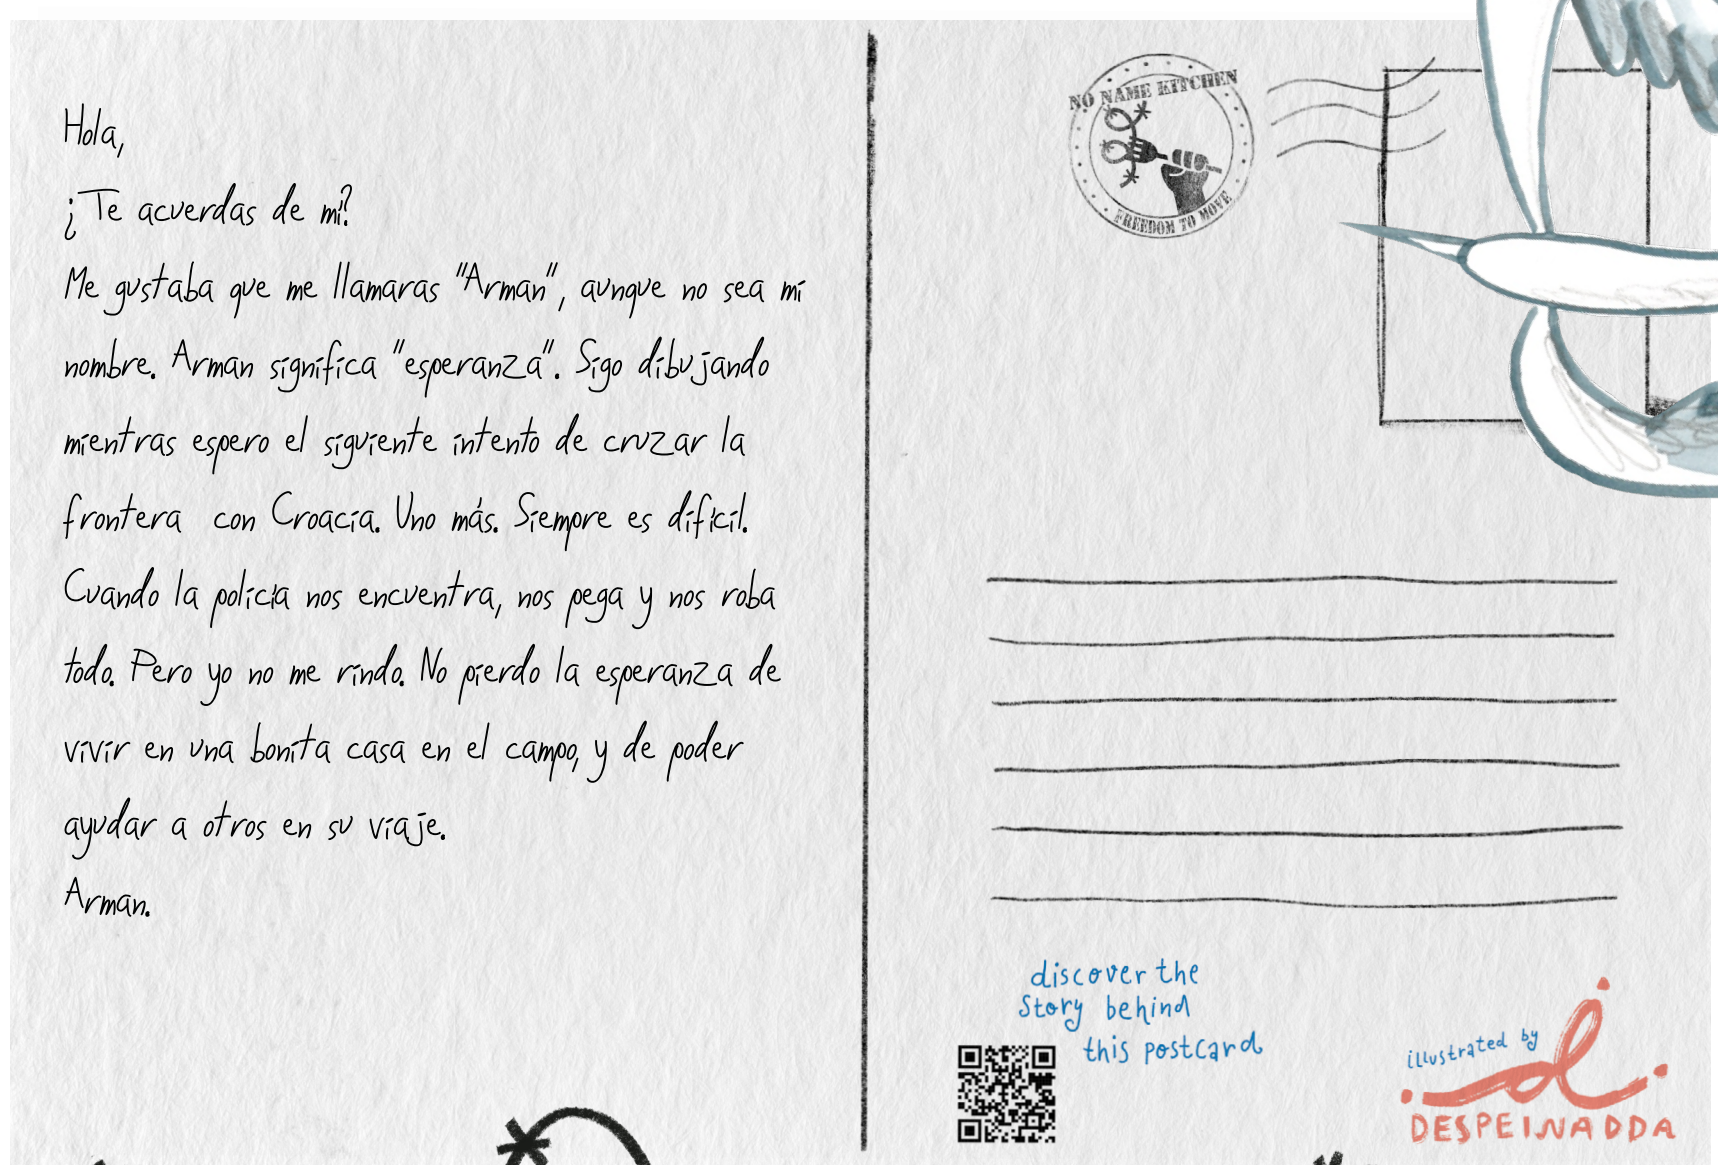 Hola,
¿Te acuerdas de mí?
Me gustaba que me llamaras "Arman", aunque no sea mi
nombre. Arman significa "esperanza". Sigo dibujando
mientras espero el siguiente intento de cruzar la
frontera con Croacia. Uno más. Siempre es difícil.
Cuando la policía nos encuentra, nos pega y nos roba
todo. Pero yo no me rindo. No pierdo la esperanza de
vivir en una bonita casa en el campo, y de poder
ayudar a otros en su viaje.
Arman.
NO NAME KITCHEN
FREEDOM TO MOVE
discover the
story behind
this postcard
illustrated by
d
DESPEINADDA